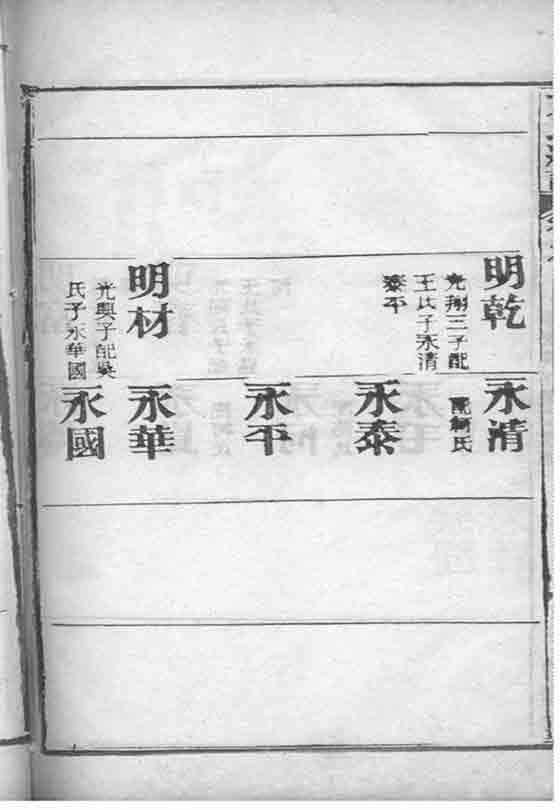 明乾
光翔三子配
王氏子永清
泰平
明材
光興子配吳
氏子永華國
永清
永泰
永平
永華
永國